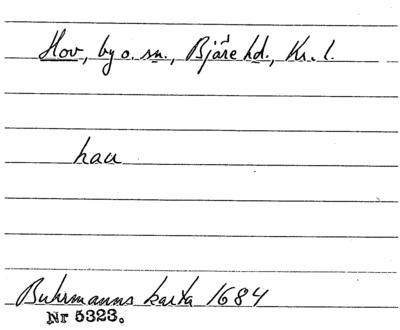 Hov, by o. sn., Bjäre hd., Kr. l.
hau
Buhrmanns karta 1684
Nr 5323.